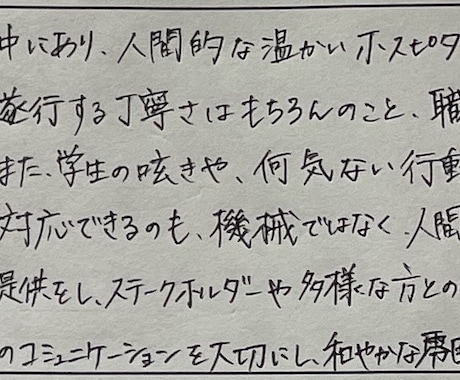 中にあり、人間的な温かいホスピタ
遂行する丁寧さはもちろんのこと、職
また、学生の呟きや、何気ない行動
対応できるのも、機械ではなく、人間
提供をし、ステークホルダーや多様な方との
のコミュニケーションを大切にし、和やかな雰囲